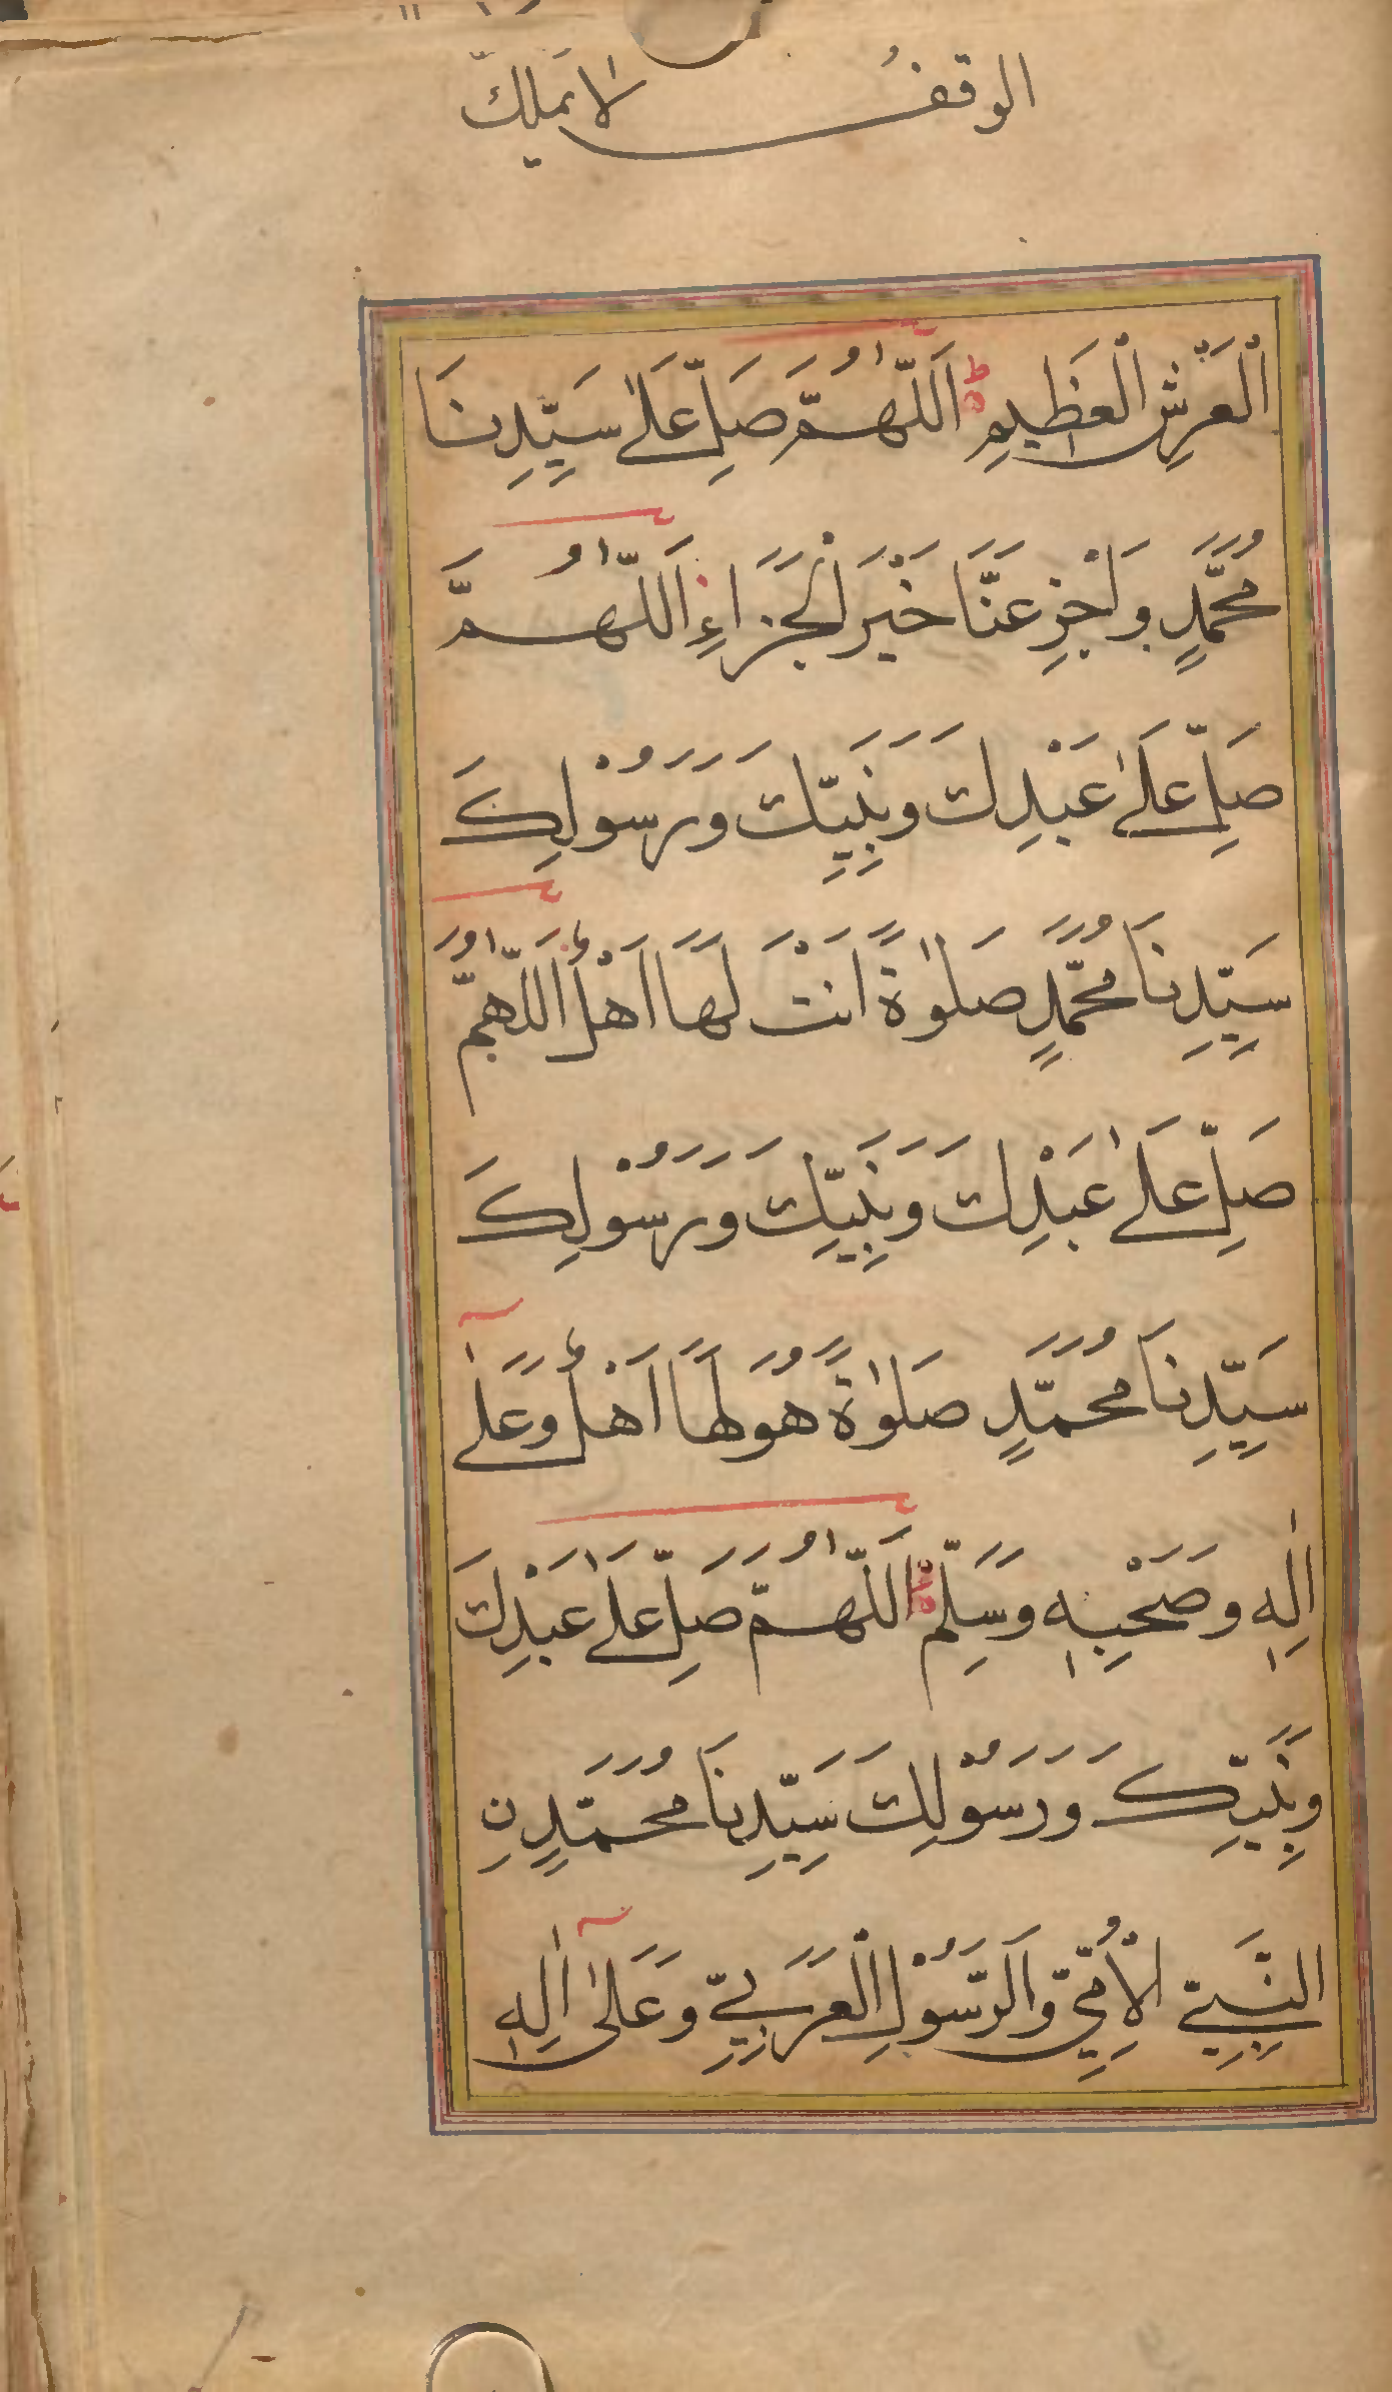 الوقفُ لا يملك
الْعَرْشِ الْعَظِيمِ اَللّٰهُمَّ صَلِّ عَلٰى سَيِّدِنَا
مُحَمَّدٍ وَاجْزِ عَنَّا خَيْرَ الْجَزَاءِ اَللّٰهُمَّ
صَلِّ عَلٰى عَبْدِكَ وَنَبِيِّكَ وَرَسُوْلِكَ
سَيِّدِنَا مُحَمَّدٍ صَلٰوةً اَنْتَ لَهَا اَهْلٌ اَللّٰهُمَّ
صَلِّ عَلٰى عَبْدِكَ وَنَبِيِّكَ وَرَسُوْلِكَ
سَيِّدِنَا مُحَمَّدٍ صَلٰوةً هُوَ لَهَا اَهْلٌ وَعَلٰى
اٰلِهٖ وَصَحْبِهٖ وَسَلِّمْ اَللّٰهُمَّ صَلِّ عَلٰى عَبْدِكَ
وَنَبِيِّكَ وَرَسُوْلِكَ سَيِّدِنَا مُحَمَّدٍ نِ
النَّبِيِّ الْاُمِّيِّ وَالرَّسُوْلِ الْعَرَبِيِّ وَعَلٰى اٰلِهٖ